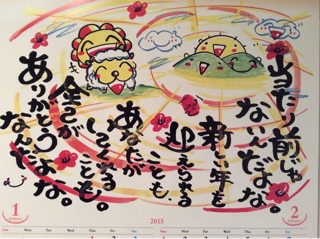 当たり前じゃ
ないんだよな。
新しい年を
迎えられる
ことも、
あなたが
いてくれる
ことも。
全てが
ありがとうよな。
なんだ
1
2015
2
Sun Mon Tue Wed Thu Fri Sat
Sun Mon Tue Wed Thu Fri Sat
1 2 3